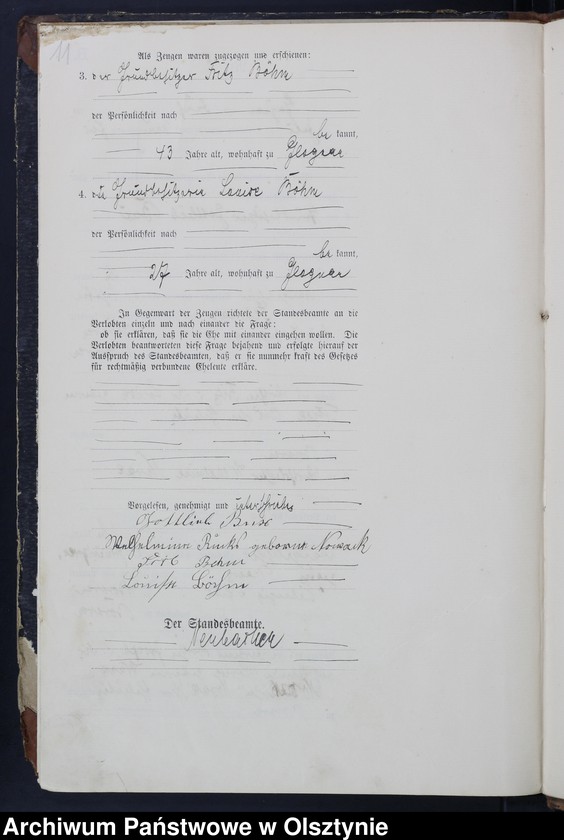 11
Als Zeugen waren zugezogen und erschienen:
3. der Grundbesitzer Fritz Böhm
der Persönlichkeit nach
be kannt,
43 Jahre alt, wohnhaft zu
4. die Grundbesitzerin Louise Böhm
der Persönlichkeit nach
be kannt,
27 Jahre alt, wohnhaft zu
In Gegenwart der Zeugen richtete der Standesbeamte an die
Verlobten einzeln und nach einander die Frage:
ob sie erklären, daß sie die Ehe mit einander eingehen wollen. Die
Verlobten beantworteten diese Frage bejahend und erfolgte hierauf der
Ausspruch des Standesbeamten, daß er sie nunmehr kraft des Gesetzes
für rechtmäßig verbundene Eheleute erkläre.
Vorgelesen, genehmigt und unterschrieben
Gottlieb
Wilhelmine geborne Nowack
Fritz Böhm
Louise Böhm
Der Standesbeamte.
Archiwum Państwowe w Olsztynie